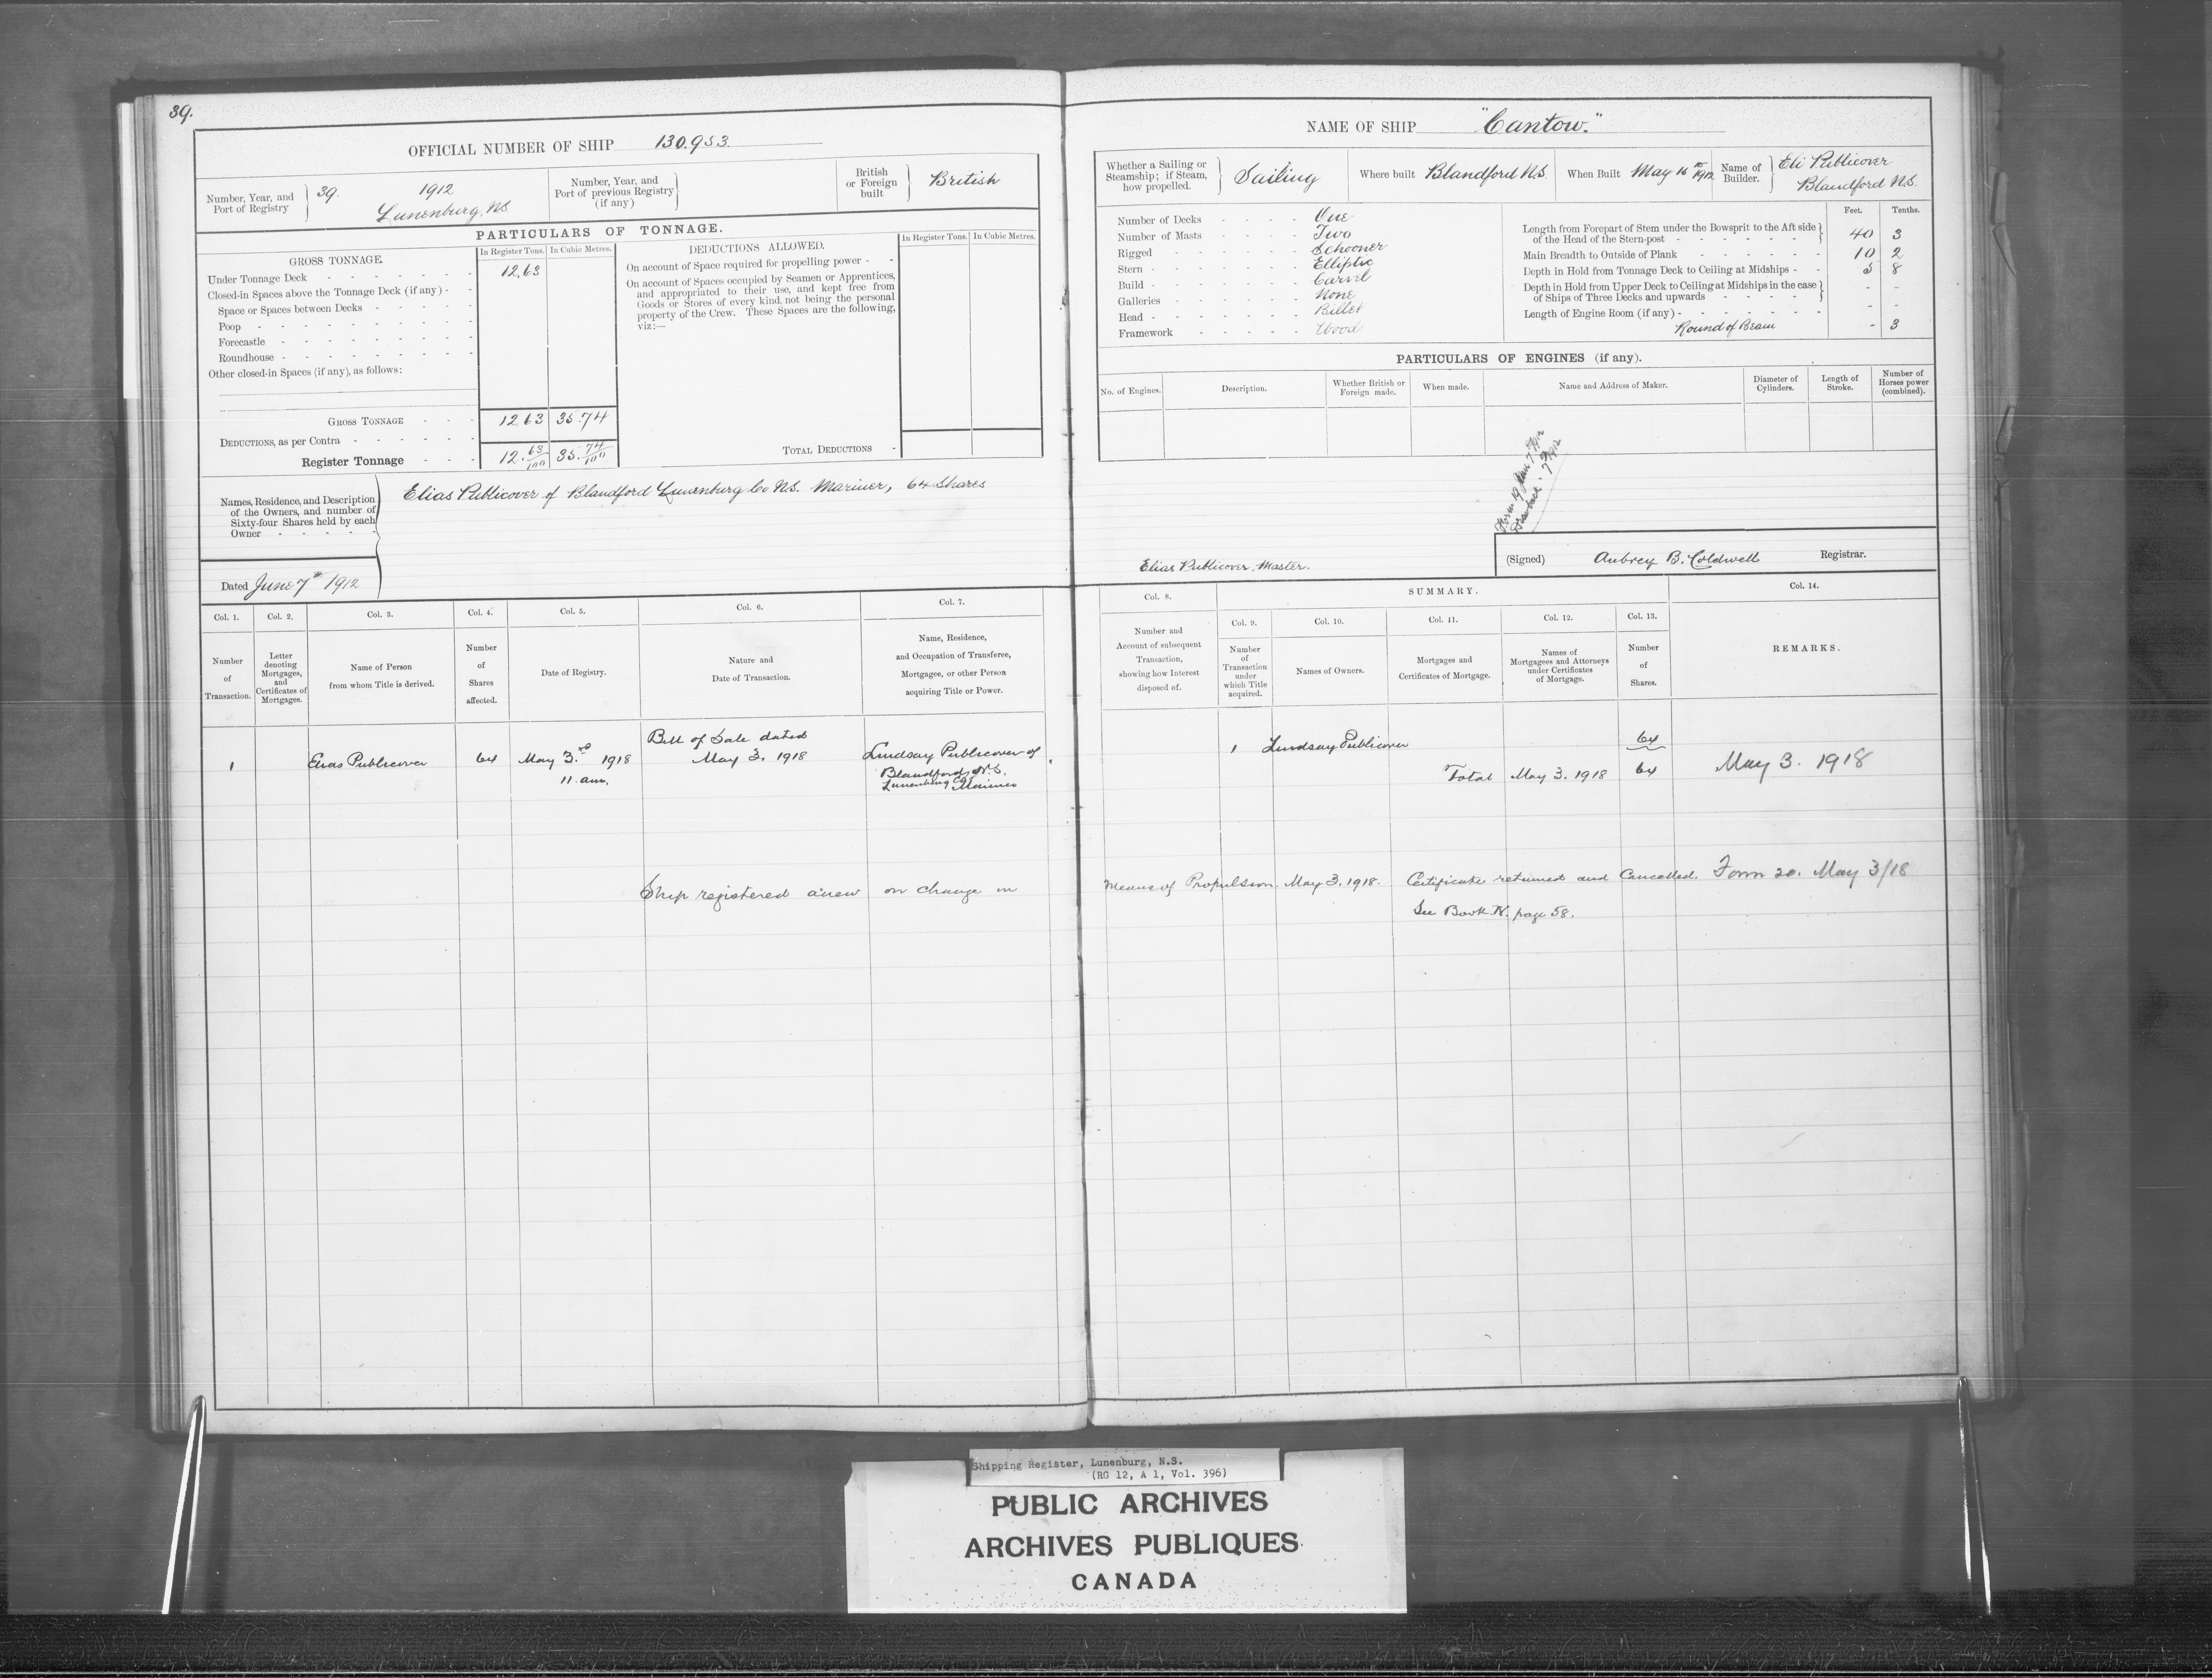 39.
OFFICIAL NUMBER OF SHIP 130.953.
Number, Year, and Port of Registry } 39. 1912 Lunenburg, N.S.
Number, Year, and Port of previous Registry (if any)
British or Foreign built } British
PARTICULARS OF TONNAGE.
GROSS TONNAGE.
In Register Tons. In Cubic Metres.
Under Tonnage Deck 12.63
Closed-in Spaces above the Tonnage Deck (if any) -
Space or Spaces between Decks
Poop
Forecastle
Roundhouse
Other closed-in Spaces (if any), as follows:
GROSS TONNAGE 12.63 35.74
DEDUCTIONS, as per Contra
Register Tonnage 12.63/100 35.74/100
DEDUCTIONS ALLOWED.
In Register Tons. In Cubic Metres.
On account of Space required for propelling power -
On account of Spaces occupied by Seamen or Apprentices,
and appropriated to their use, and kept free from
Goods or Stores of every kind, not being the personal
property of the Crew. These Spaces are the following,
viz:—
TOTAL DEDUCTIONS
Names, Residence, and Description
of the Owners, and number of
Sixty-four Shares held by each
Owner
Elias Publicover of Blandford Lunenburg Co N.S. Mariner, 64 Shares
Dated June 7th 1912
Col. 1. Col. 2. Col. 3. Col. 4. Col. 5. Col. 6. Col. 7.
Number of Transaction.
Letter denoting Mortgages, and Certificates of Mortgages.
Name of Person from whom Title is derived.
Number of Shares affected.
Date of Registry.
Nature and Date of Transaction.
Name, Residence, and Occupation of Transferee, Mortgagee, or other Person acquiring Title or Power.
1 Elias Publicover 64 May 3rd 1918 11 am.
Bill of Sale dated
May 3. 1918
Lindsay Publicover of
Blandford, N.S.
Lunenburg Co Mariner
Ship registered anew on change in
NAME OF SHIP "Cantow."
Whether a Sailing or Steamship; if Steam, how propelled. } Sailing
Where built Blandford N.S.
When Built May 16th 1912
Name of Builder. } Eli Publicover Blandford N.S.
Number of Decks One
Number of Masts Two
Rigged Schooner
Stern Elliptic
Build Carvel
Galleries None
Head Billet
Framework Wood
Feet. Tenths.
Length from Forepart of Stem under the Bowsprit to the Aft side of the Head of the Stern-post 40 3
Main Breadth to Outside of Plank 10 2
Depth in Hold from Tonnage Deck to Ceiling at Midships 5 8
Depth in Hold from Upper Deck to Ceiling at Midships in the case of Ships of Three Decks and upwards - -
Length of Engine Room (if any) - -
Round of Beam - 3
PARTICULARS OF ENGINES (if any).
No. of Engines.
Description.
Whether British or Foreign made.
When made.
Name and Address of Maker.
Diameter of Cylinders.
Length of Stroke.
Number of Horses power (combined).
Elias Publicover, Master.
(Signed) Aubrey B. Coldwell Registrar.
Col. 8. SUMMARY. Col. 14.
Col. 9. Col. 10. Col. 11. Col. 12. Col. 13.
Number and Account of subsequent Transaction, showing how Interest disposed of.
Number of Transaction under which Title acquired.
Names of Owners.
Mortgages and Certificates of Mortgage.
Names of Mortgagees and Attorneys under Certificates of Mortgage.
Number of Shares.
REMARKS.
1 Lindsay Publicover 64
Total May 3. 1918 64 May 3. 1918
Means of Propulsion. May 3. 1918. Certificate returned and Cancelled. Form 20. May 3/18
See Book N. page 58.
Shipping Register, Lunenburg, N.S.
(RG 12, A 1, Vol. 396)
PUBLIC ARCHIVES
ARCHIVES PUBLIQUES
CANADA